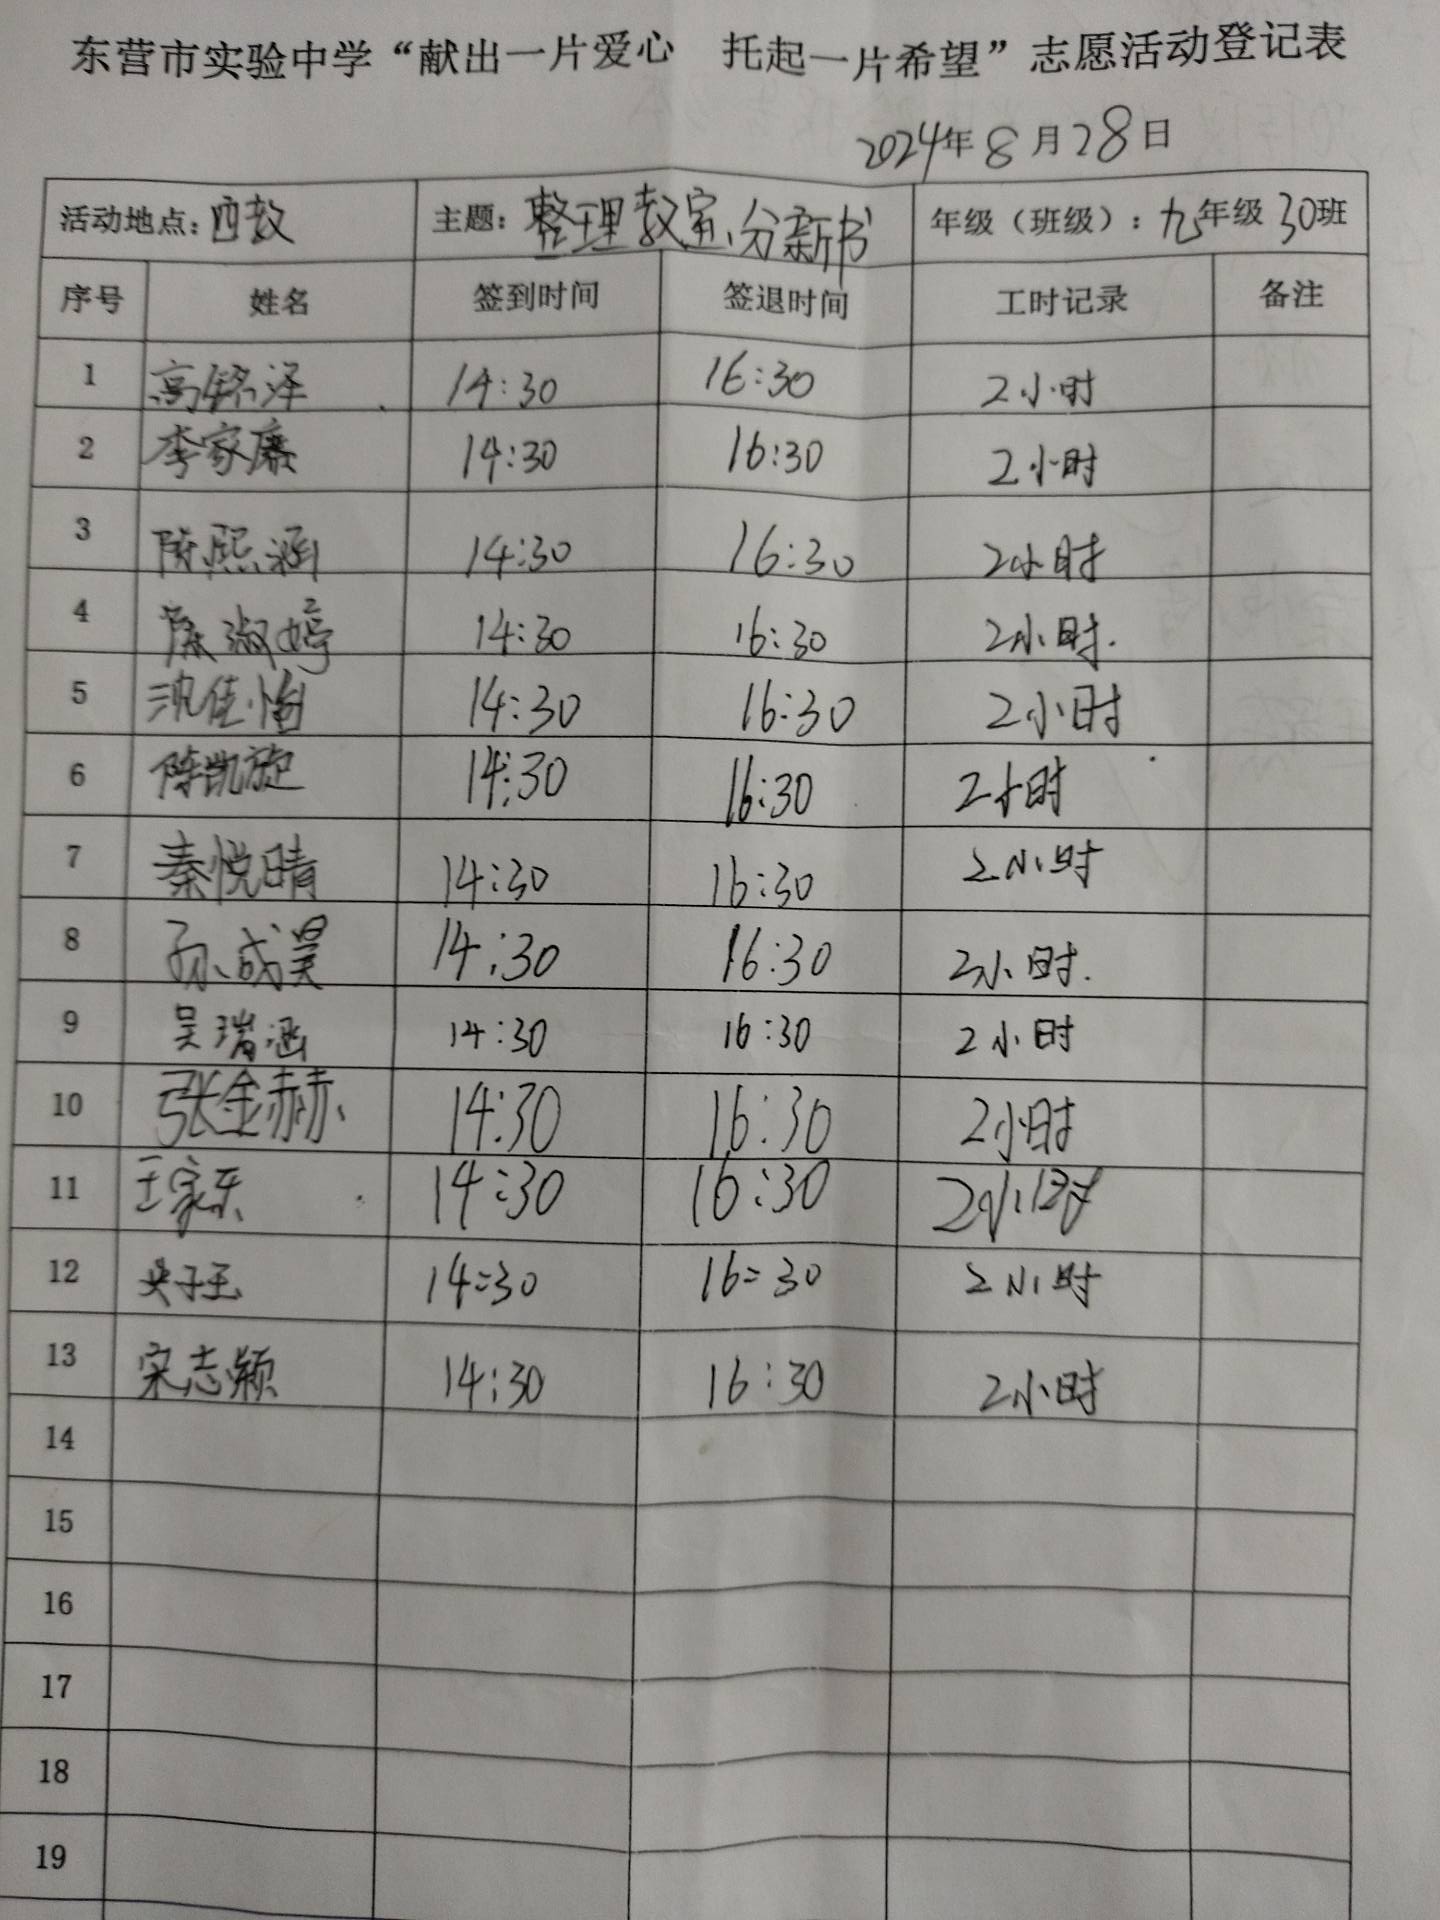 东营市实验中学“献出一片爱心 托起一片希望”志愿活动登记表
2024年8月28日
活动地点：四教 主题：整理教室、分新书 年级（班级）：九年级30班
序号 姓名 签到时间 签退时间 工时记录 备注
1 高铭泽 14:30 16:30 2小时
2 李家康 14:30 16:30 2小时
3 陈熙涵 14:30 16:30 2小时
4 康淑婷 14:30 16:30 2小时.
5 沈佳怡 14:30 16:30 2小时
6 陈凯旋 14:30 16:30 2小时
7 秦悦晴 14:30 16:30 2小时
8 孙成昊 14:30 16:30 2小时.
9 吴瑞涵 14:30 16:30 2小时
10 张金赫 14:30 16:30 2小时
11 王家乐 14:30 16:30 2小时
12 子玉 14:30 16:30 2小时
13 宋志颖 14:30 16:30 2小时
14
15
16
17
18
19